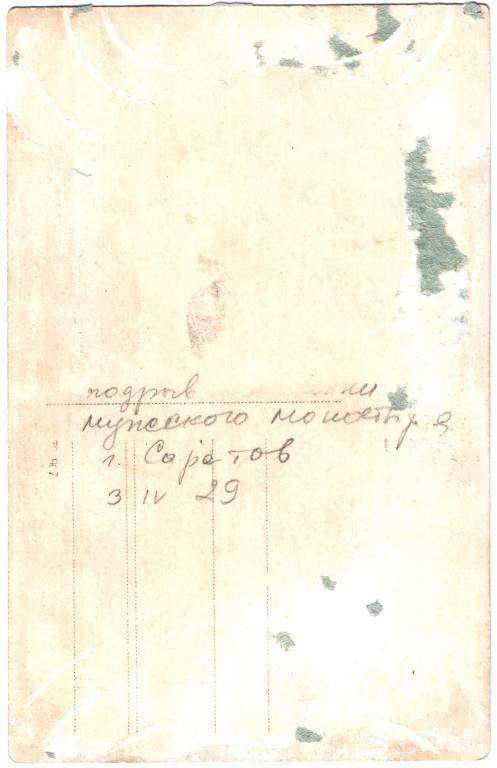 подрыв
мужского монастыря
г. Саратов
3 IV 29